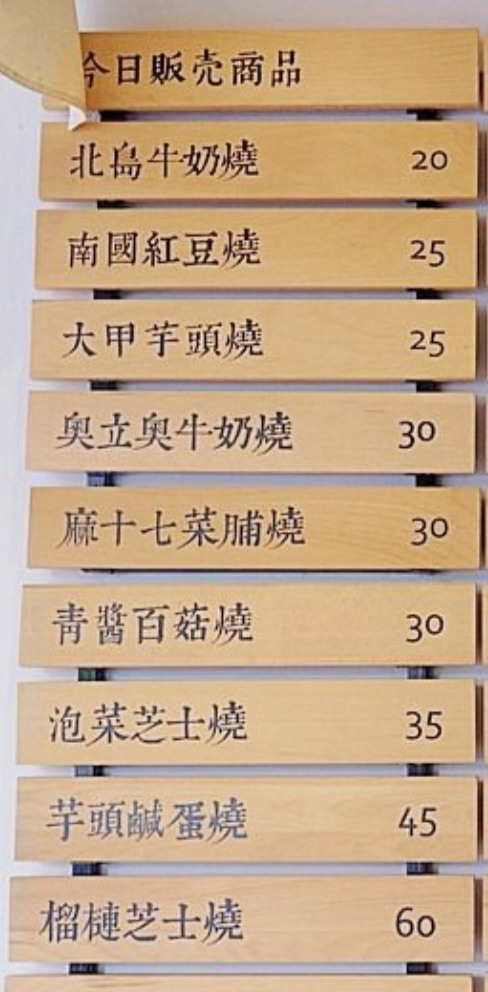 今日販売商品
北島牛奶燒 20
南國紅豆燒 25
大甲芋頭燒 25
奧立奧牛奶燒 30
麻十七菜脯燒 30
青醬百菇燒 30
泡菜芝士燒 35
芋頭鹹蛋燒 45
榴槤芝士燒 60